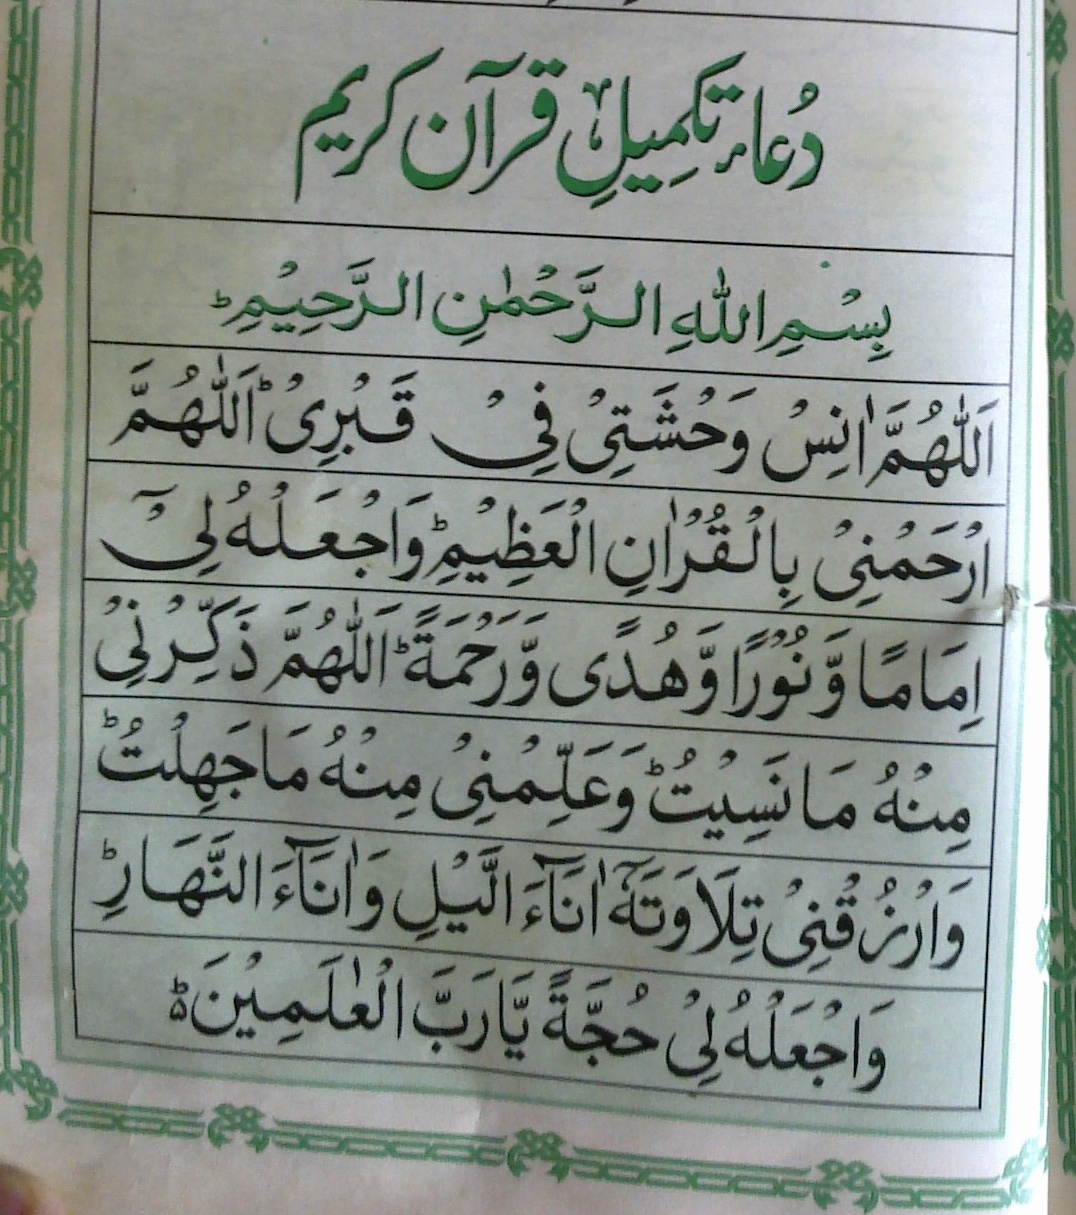 دُعاءِ تکمیلِ قرآن کریم
بِسْمِ اللّٰهِ الرَّحْمٰنِ الرَّحِيْمِ ؕ
اَللّٰهُمَّ اٰنِسْ وَحْشَتِيْ فِيْ قَبْرِيْ ؕ اَللّٰهُمَّ
ارْحَمْنِيْ بِالْقُرْاٰنِ الْعَظِيْمِ ؕ وَاجْعَلْهُ لِيْٓ
اِمَامًا وَّنُوْرًا وَّهُدًى وَّرَحْمَةً ؕ اَللّٰهُمَّ ذَكِّرْنِيْ
مِنْهُ مَا نَسِيْتُ ؕ وَعَلِّمْنِيْ مِنْهُ مَا جَهِلْتُ ؕ
وَارْزُقْنِيْ تِلَاوَتَهٗٓ اٰنَآءَ الَّيْلِ وَاٰنَآءَ النَّهَارِ ؕ
وَاجْعَلْهُ لِيْ حُجَّةً يَّا رَبَّ الْعٰلَمِيْنَ ؕ